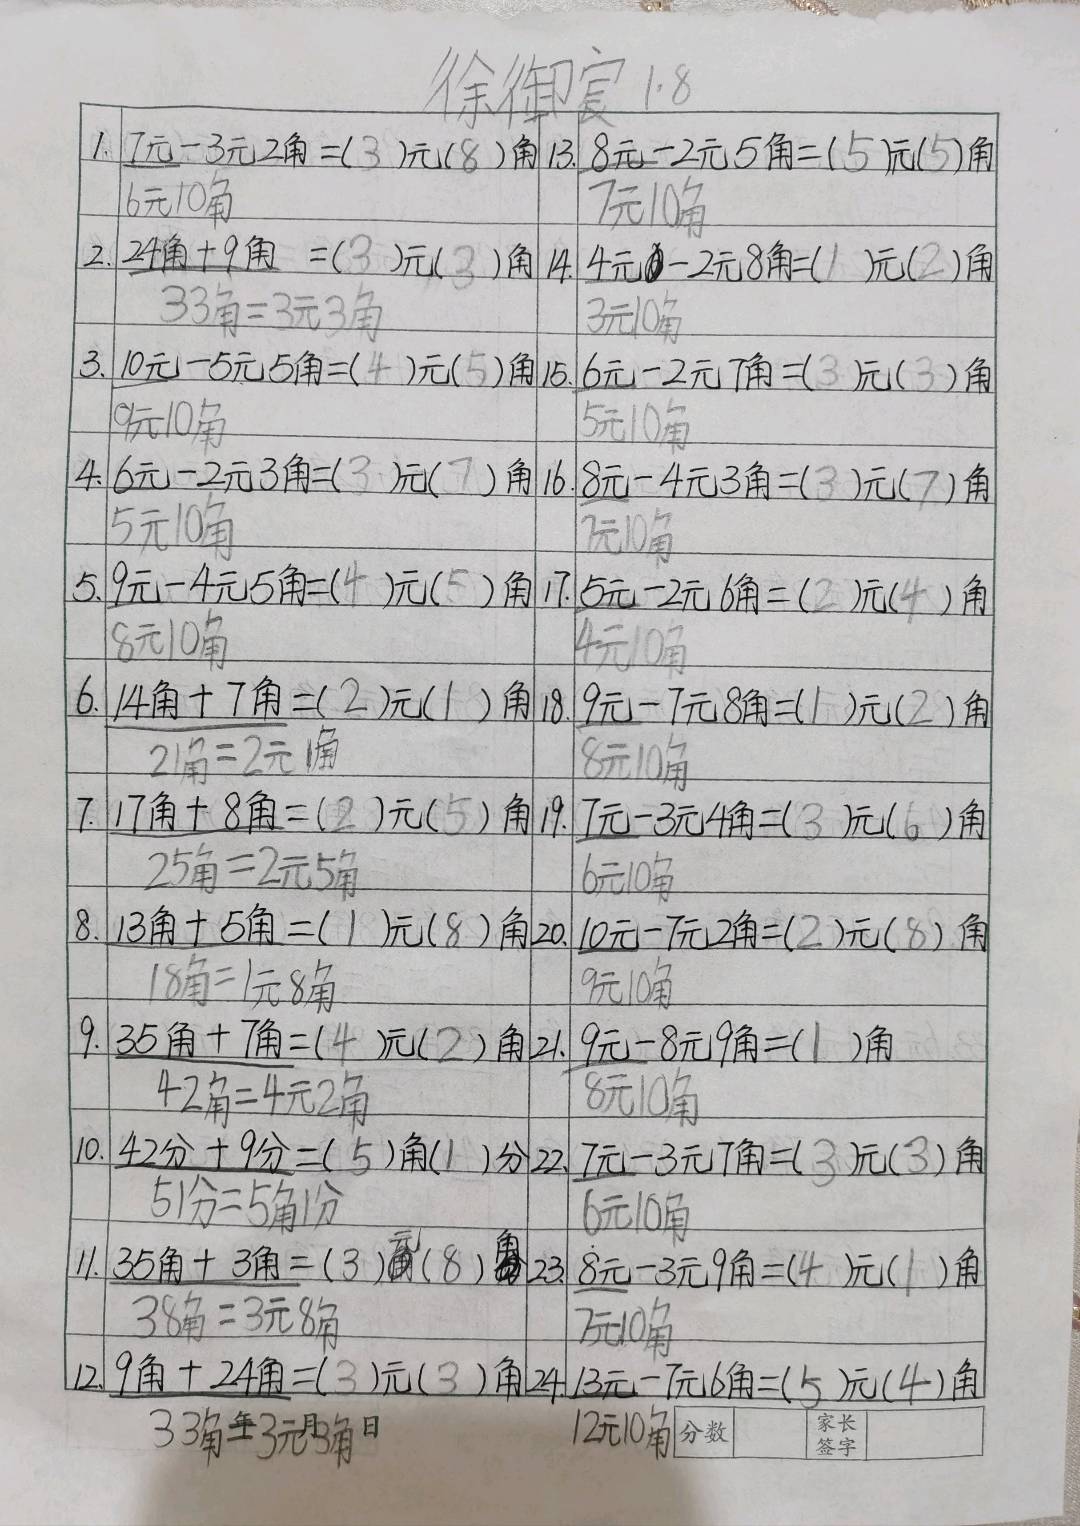 徐御宸 1.8
1. 7元-3元2角=(3)元(8)角
6元10角
2. 24角+9角=(3)元(3)角
33角=3元3角
3. 10元-5元5角=(4)元(5)角
9元10角
4. 6元-2元3角=(3)元(7)角
5元10角
5. 9元-4元5角=(4)元(5)角
8元10角
6. 14角+7角=(2)元(1)角
21角=2元1角
7. 17角+8角=(2)元(5)角
25角=2元5角
8. 13角+5角=(1)元(8)角
18角=1元8角
9. 35角+7角=(4)元(2)角
42角=4元2角
10. 42分+9分=(5)角(1)分
51分=5角1分
11. 35角+3角=(3)元(8)角
38角=3元8角
12. 9角+24角=(3)元(3)角
33角=3元3角
年 月 日
13. 8元-2元5角=(5)元(5)角
7元10角
14. 4元-2元8角=(1)元(2)角
3元10角
15. 6元-2元7角=(3)元(3)角
5元10角
16. 8元-4元3角=(3)元(7)角
7元10角
17. 5元-2元6角=(2)元(4)角
4元10角
18. 9元-7元8角=(1)元(2)角
8元10角
19. 7元-3元4角=(3)元(6)角
6元10角
20. 10元-7元2角=(2)元(8)角
9元10角
21. 9元-8元9角=(1)角
8元10角
22. 7元-3元7角=(3)元(3)角
6元10角
23. 8元-3元9角=(4)元(1)角
7元10角
24. 13元-7元6角=(5)元(4)角
12元10角
分数
家长
签字